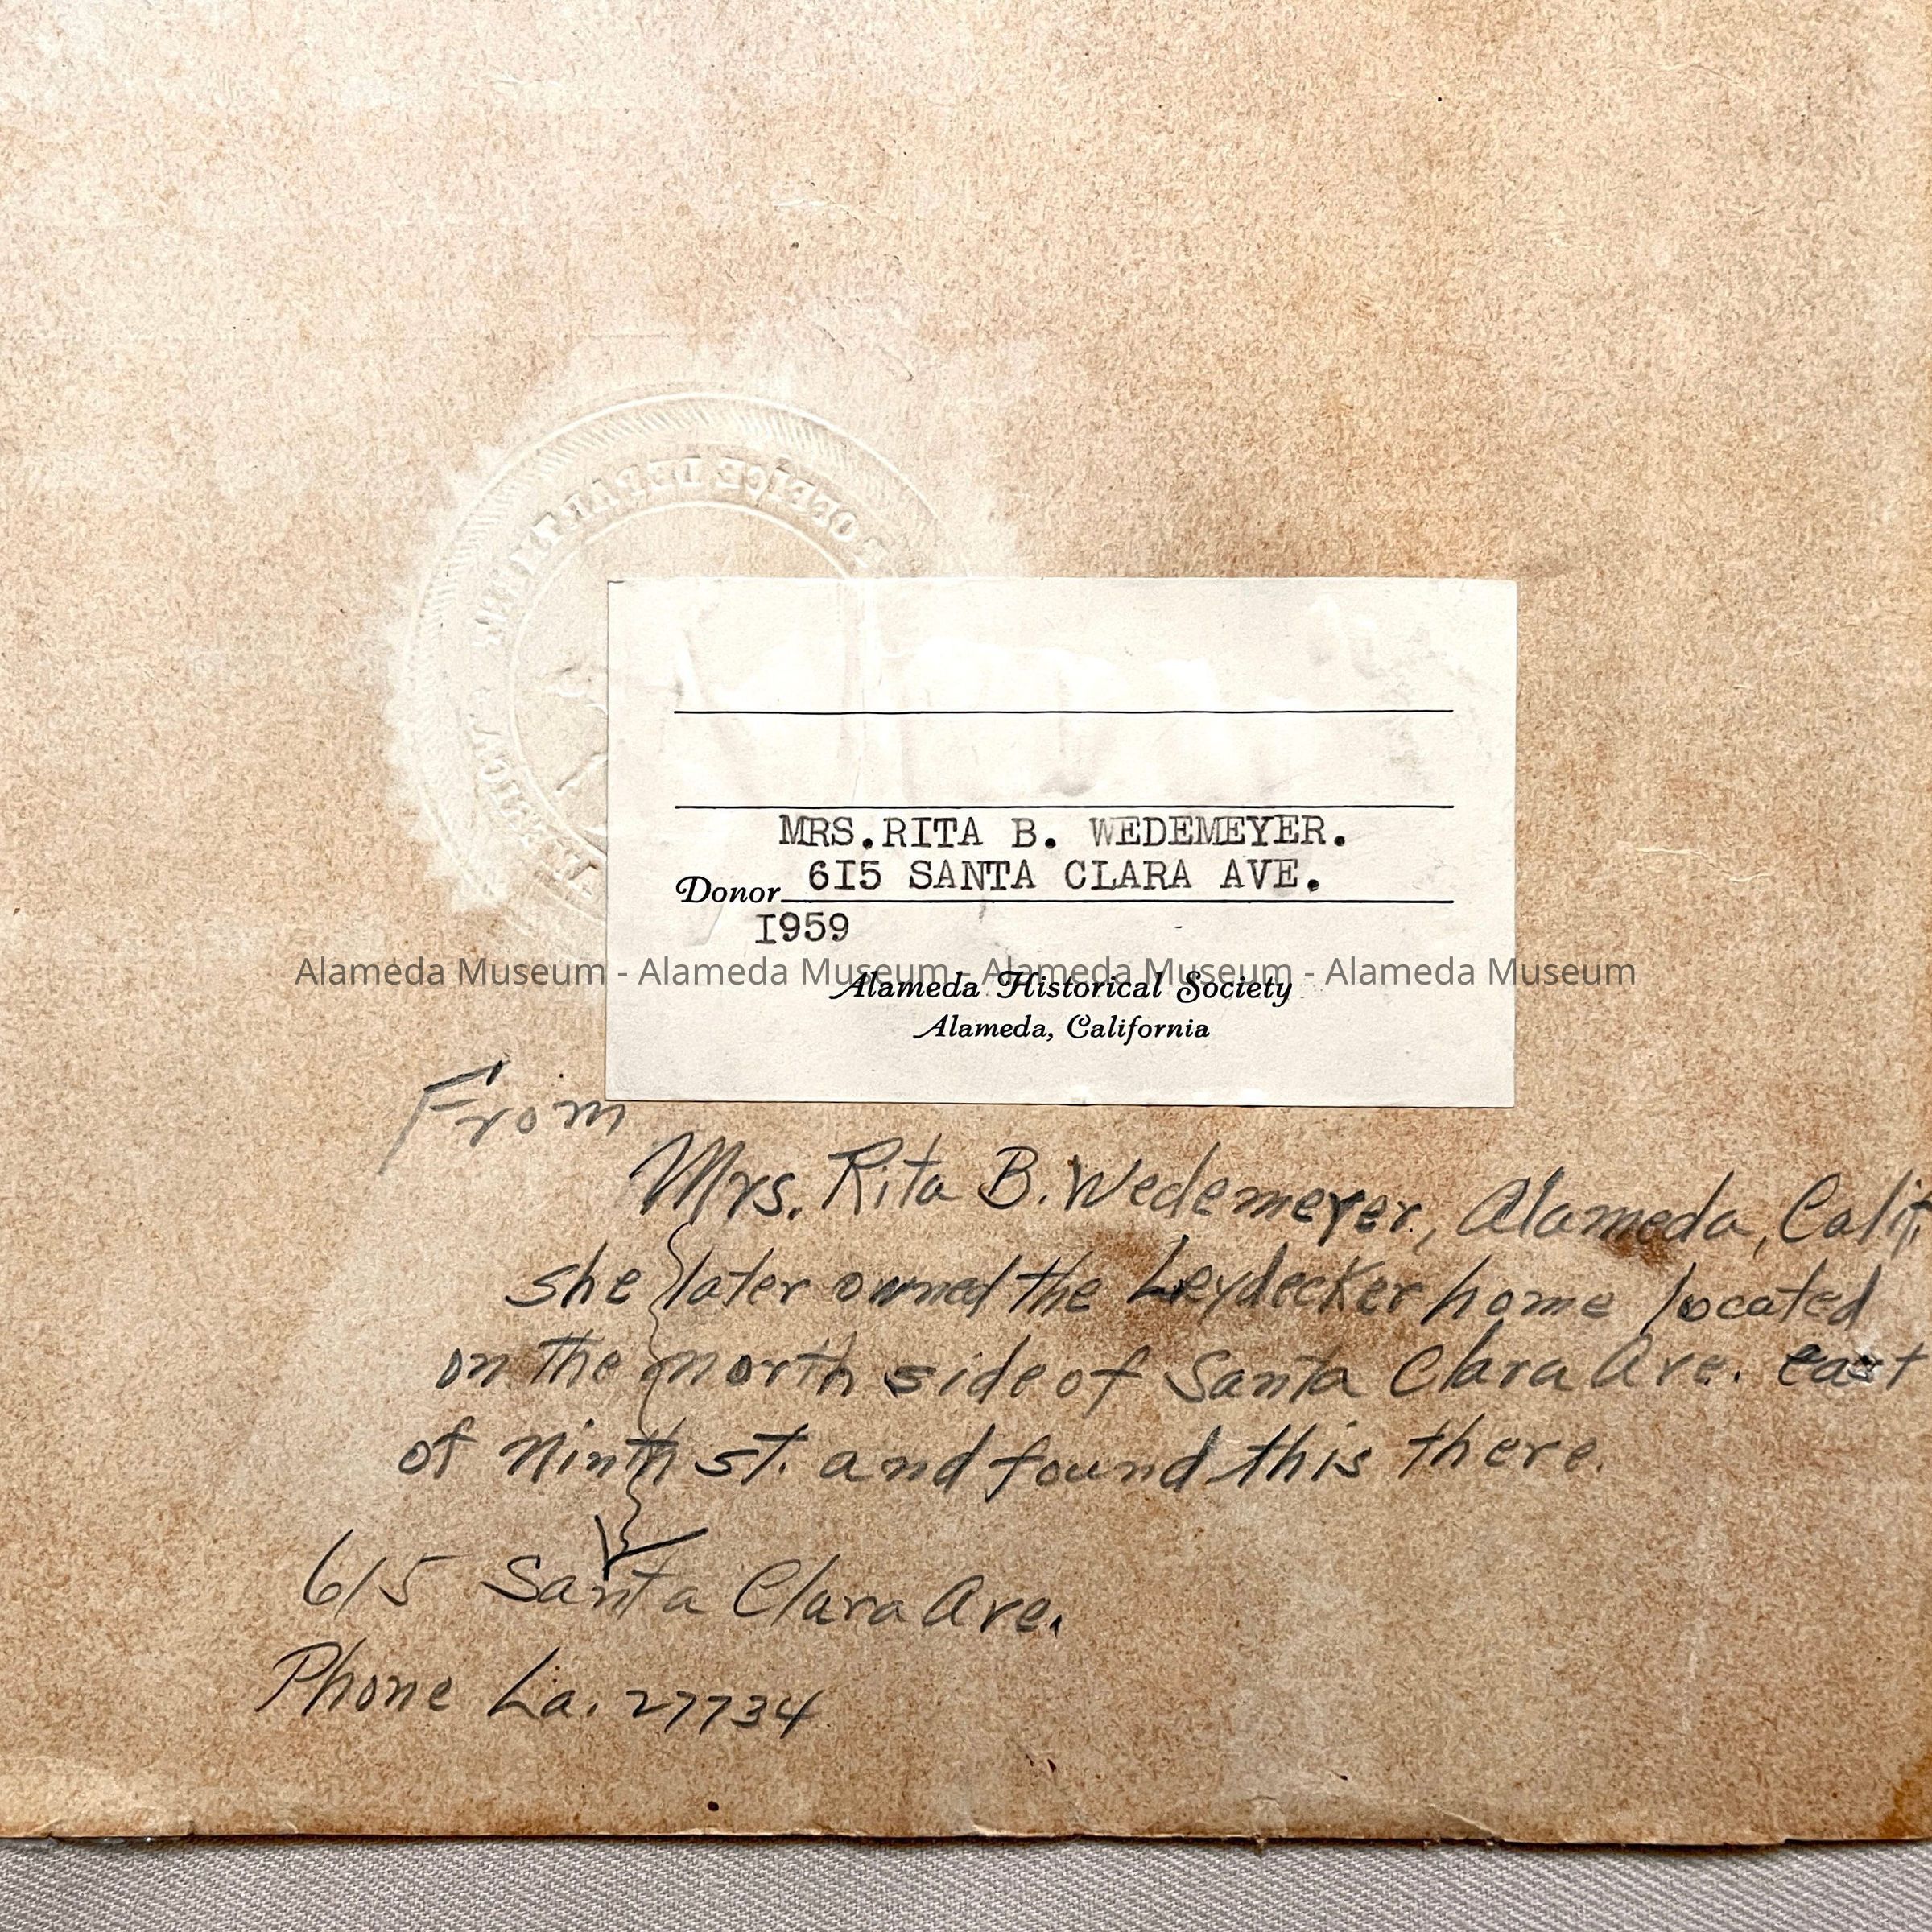 OFFICE DEPARTMENT
MRS.RITA B. WEDEMEYER.
Donor 6I5 SANTA CLARA AVE.
I959
Alameda Museum - Alameda Museum - Alameda Museum - Alameda Museum
Alameda Historical Society
Alameda, California
From
Mrs. Rita B. Wedemeyer, Alameda, Calif.
she later owned the Leydecker home located
on the north side of Santa Clara Ave. east
of Ninth st. and found this there.
615 Santa Clara Ave.
Phone La. 27734